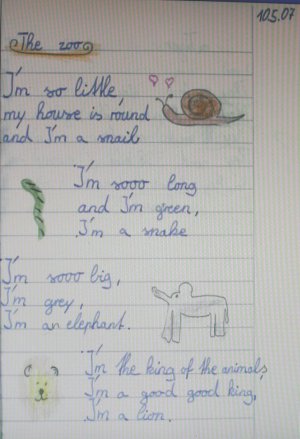 10.5.07
The zoo
I'm so little,
my house is round
and I'm a snail
I'm sooo long
and I'm green,
I'm a snake
I'm sooo big,
I'm grey,
I'm an elephant.
I'm the king of the animals,
I'm a good good king,
I'm a lion.